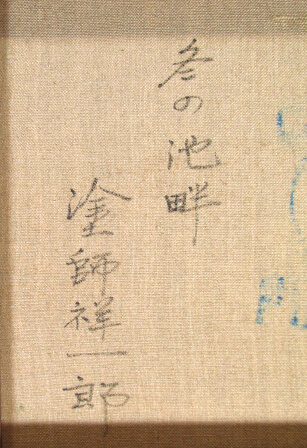 冬の池畔
塗師祥一郎